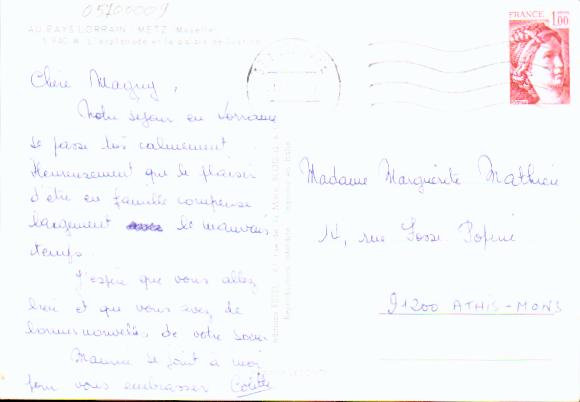 05700009
AU PAYS LORRAIN - METZ (Moselle)
L'esplanade et le palais de Justice
FRANCE
1,00
Chère Maguy,
Notre séjour en Lorraine
se passe très calmement.
Heureusement que le plaisir
d'être en famille compense
largement le mauvais
temps.
J'espère que vous allez
bien et que vous avez de
bonnes nouvelles de votre soeur
se joint à moi
pour vous embrasser Colette
Madame Marguerite Mathieu
14, rue Fosse
91200 ATHIS-MONS